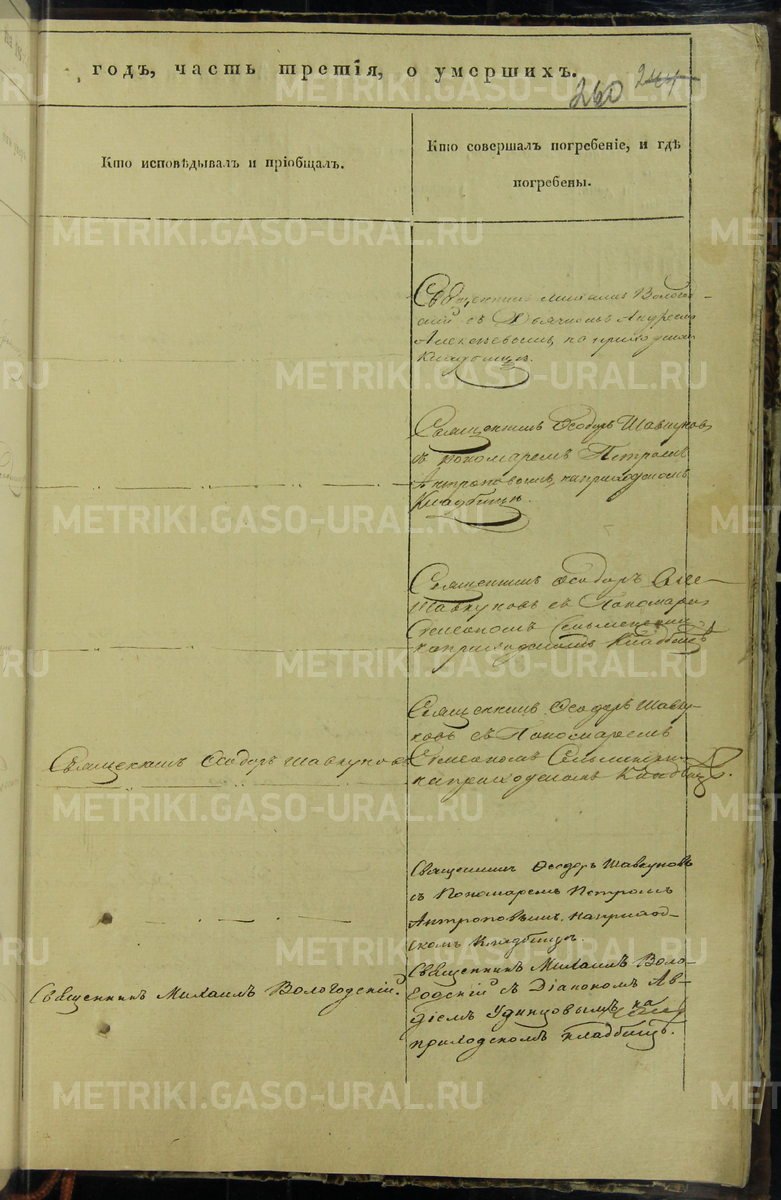 годъ, часть третія, о умершихъ.
260 244
Кто исповѣдывалъ и пріобщалъ.
Кто совершалъ погребеніе, и гдѣ
погребены.
Священникъ Михаилъ Волого-
скій съ Дьячкомъ Андреемъ
Алексеевымъ на приходскомъ
Кладбищѣ.
Священникъ Ѳеодоръ Шавкуновъ
съ пономаремъ Петромъ
Антроповымъ, на приходскомъ
Кладбищѣ.
Священникъ Ѳеодоръ
Шавкуновъ съ Пономаремъ
Стефаномъ
на приходскомъ Кладбищѣ
Священникъ Ѳеодоръ Шавку-
новъ съ Пономаремъ
Священникъ Ѳеодоръ Шавкуновъ
Стефаномъ
на приходскомъ Кладбищѣ.
Священникъ Ѳеодоръ Шавкуновъ
съ Пономаремъ Петромъ
Антроповымъ, на приход-
скомъ Кладбищѣ.
Священникъ Михаилъ Вологодскій.
Священникъ Михаилъ Воло-
годскій съ Діакономъ Ав-
діемъ Удинцовымъ на
приходскомъ кладбищѣ.
METRIKI.GASO-URAL.RU